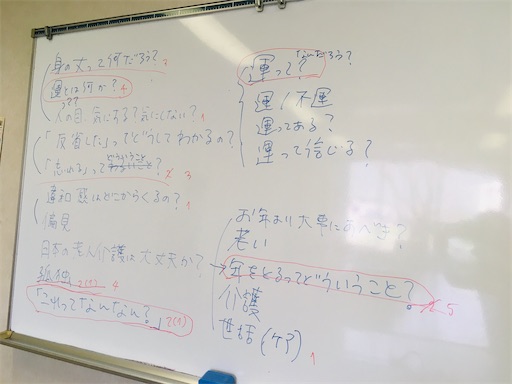 身の丈って何だろう? 2
運とは何か? 4
人の目 気にする?気にしない? 1
「反省した」ってどうしてわかるの?
「忘れる」ってどういうこと? 3
違和感はどこからくるの? 1
偏見
日本の老人介護は大丈夫か?
孤独 2(1) 4
「これってなんなん?」2(1)
運って? なんだろう?
運/不運
運ってある?
運って信じる?
お年より大事にすべき?
老い
年をとるってどういうこと? 5
介護
世話(ケア) 1